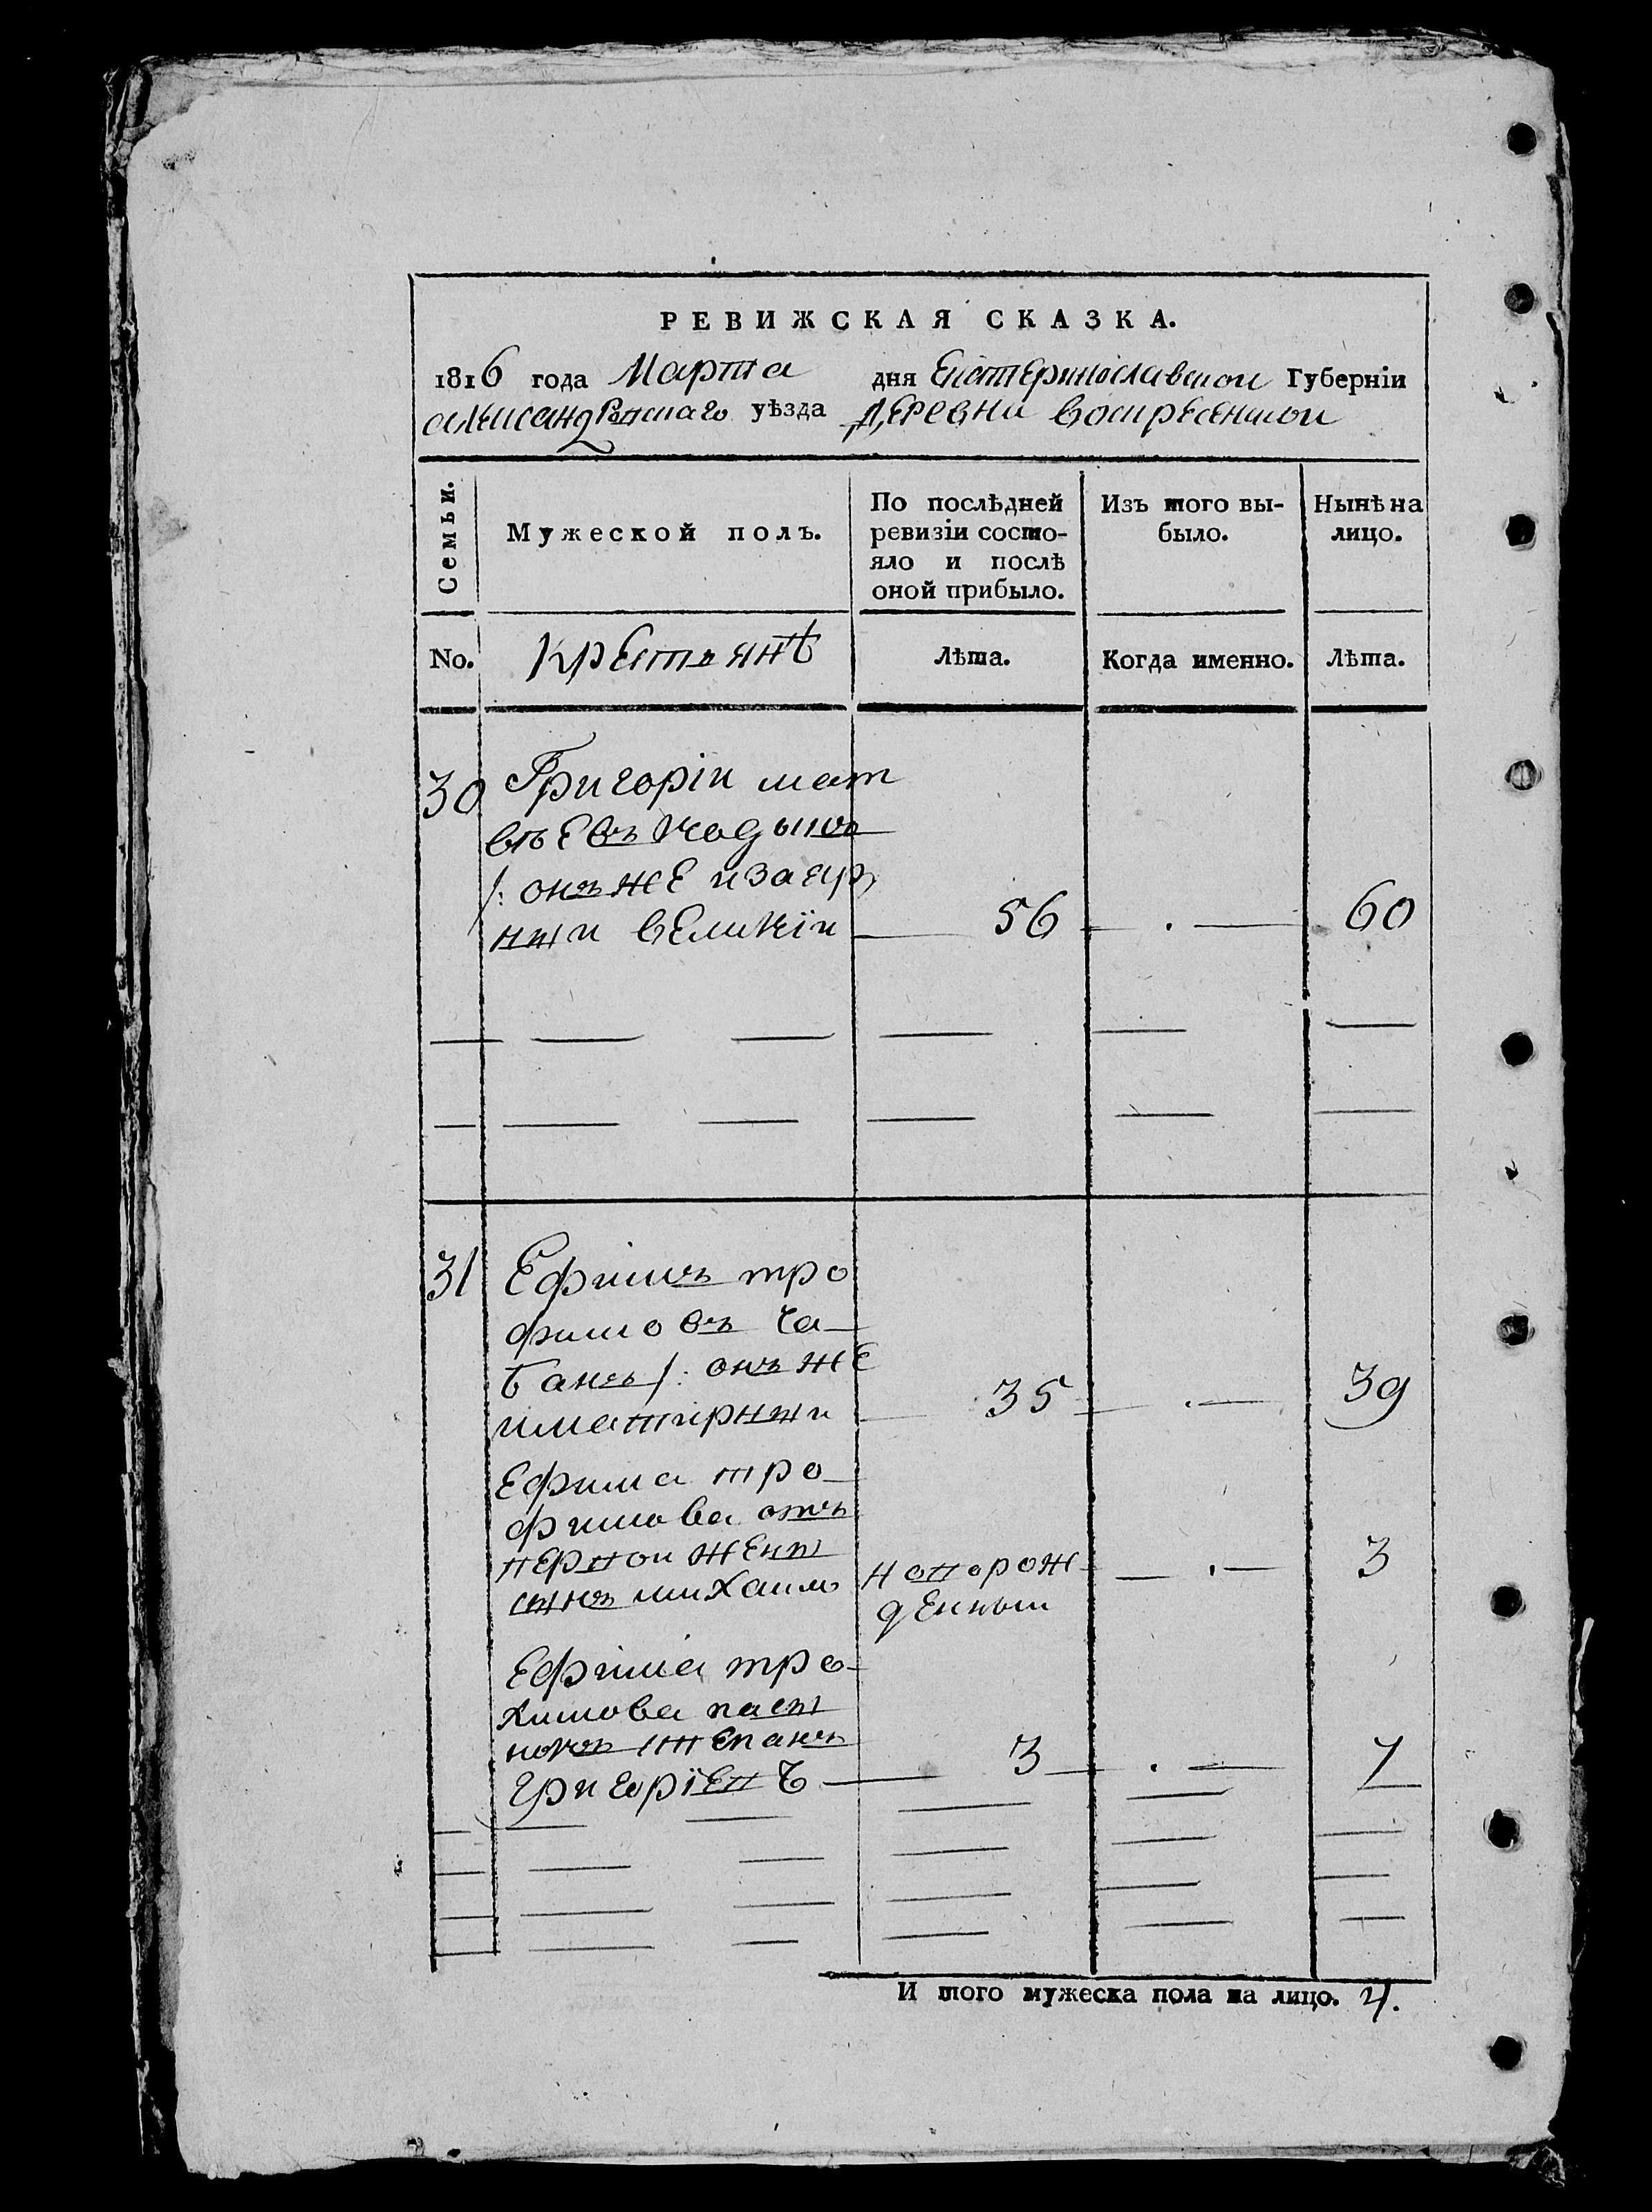 РЕВИЖСКАЯ СКАЗКА.
1816 года Марта дня Екатеринославскои Губерніи
александровскаго уѣзда деревни воскресенскои
Семьи.
Мужеской полъ.
По послѣдней
ревизіи состо-
яло и послѣ
оной прибыло.
Изъ того вы-
было.
Нынѣ на
лицо.
No.
крестьянѣ
Лѣта.
Когда именно.
Лѣта.
30 Григоріи мат
вѣевъ
/: онъ же
великіи 56 60
31 Ефимъ тро
фимовъ ча
банъ /: онъ же
35 39
Ефима тро
фимова отъ
первои жены
сынъ михаило новорож 3
денныи
Ефима тро
химова пасы
нокъ степанъ
григоріевъ 3 7
И того мужеска пола на лицо. 4.